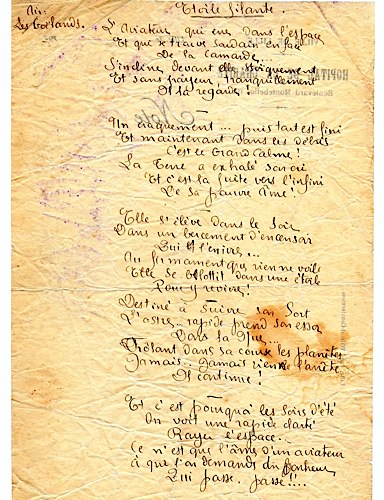 Air:
Les Goëlands.
Etoile Filante.
L'Aviateur qui erre dans l'espace
Et que se trouve soudain en face
De la Camarde
S'incline devant elle stoïquement
Et sans frayeur, tranquillement
Il la regarde!
HOPITAL
Boulevard Montebello
Note
Un craquement... puis tout est fini
Et maintenant dans les débris
C'est le Grand Calme!
La Terre a exhalé son cri
Et c'est la fuite vers l'infini
De sa pauvre âme!
Elle s'élève dans le soir
Dans un bercement d'encensoir
Qui l'enivre...
Au firmament que rien ne voile
Elle se blottit dans une étoile
Pour y revivre!
Destiné à suivre son sort
L'astre.. rapide prend son essor
Dans la nue...
Frôlant dans sa course les planètes
Jamais.. Jamais rien ne l'arrête
Il continue!
Et c'est pourquoi les soirs d'été
On voit une rapide clarté
Rayer l'espace..
Ce n'est que l'âme d'un aviateur
à que l'on demande du bonheur
Qui passe. passe!!..